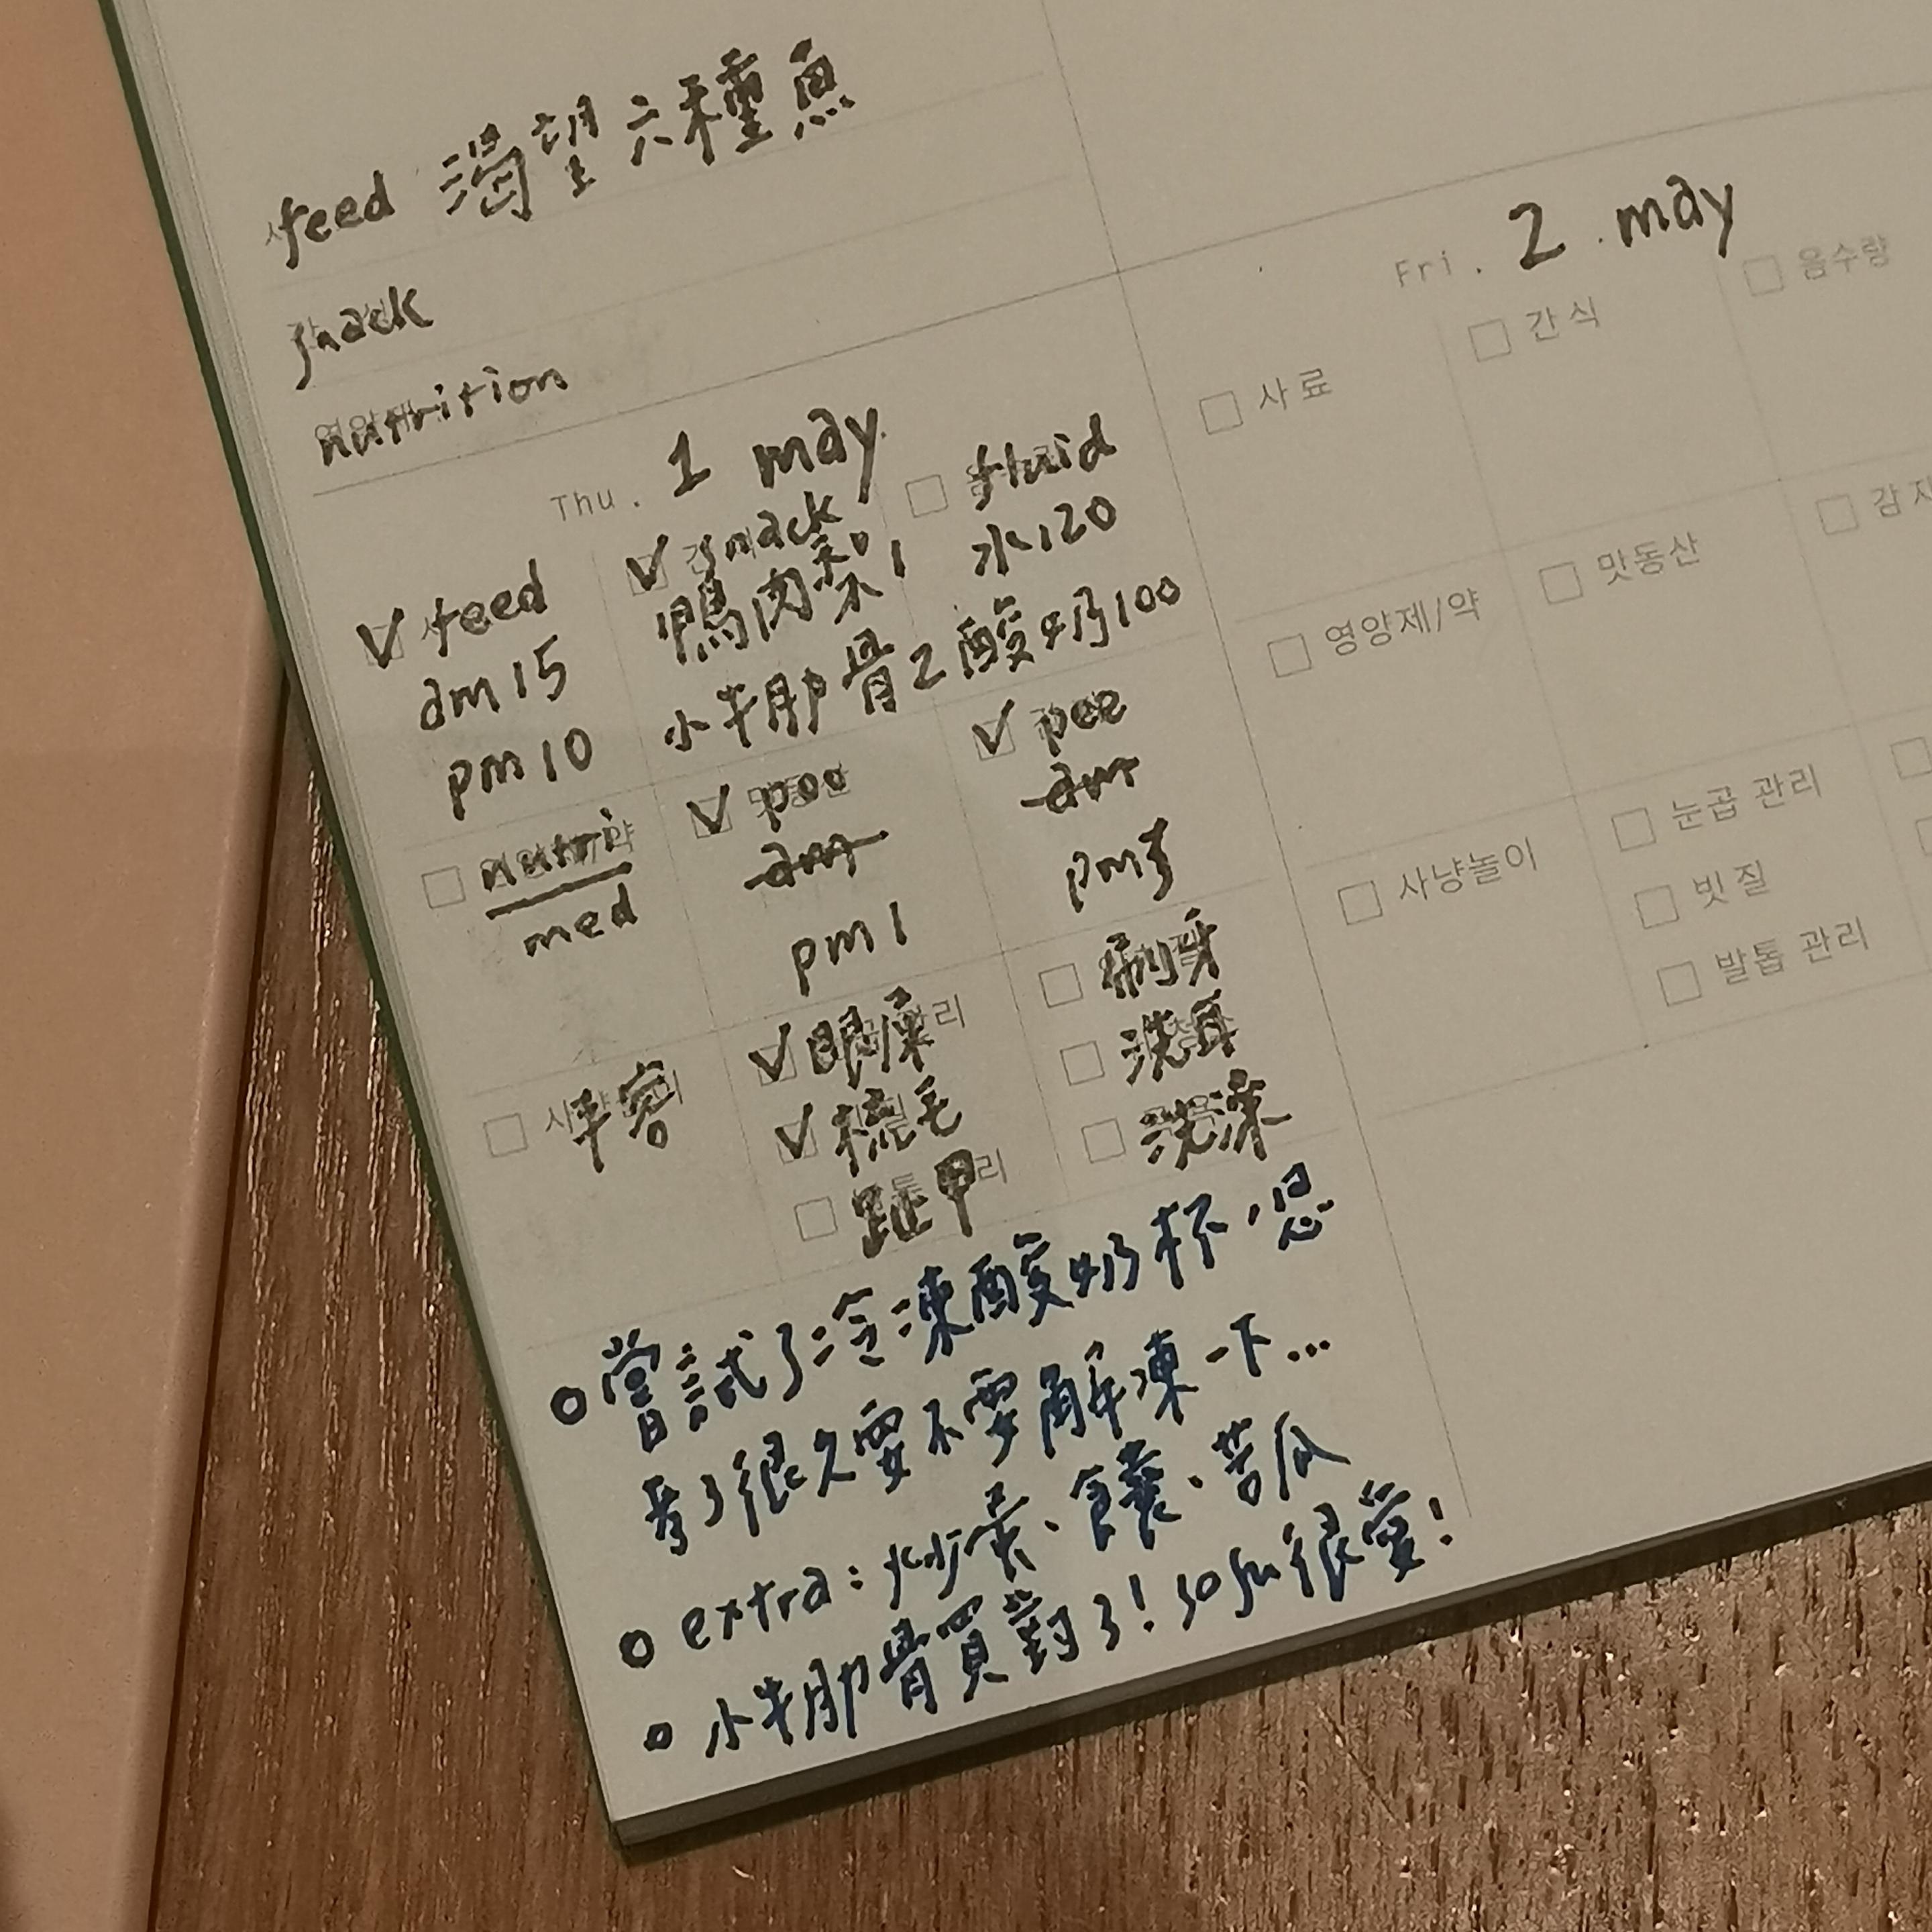 feed 渴望六種魚
snack
nutrition
Thu. 1 may
feed
am 15
pm 10
snack
鴨肉梨 1
小牛肋骨 2
fluid
水 120
酸奶 100
nutri
med
poo
am
pm 1
pee
am
pm 3
眼屎 관리
梳毛
趾甲 리
刷牙
洗耳
洗澡
嘗試了冷凍酸奶杯,思
考了很久要不要解凍一下...
extra: 炒蛋、饟、苦瓜
小牛肋骨買對了! sofu 很愛!
Fri. 2 may
사료
간식
음수량
영양제/약
맛동산
감자
사냥놀이
눈곱 관리
빗질
발톱 관리